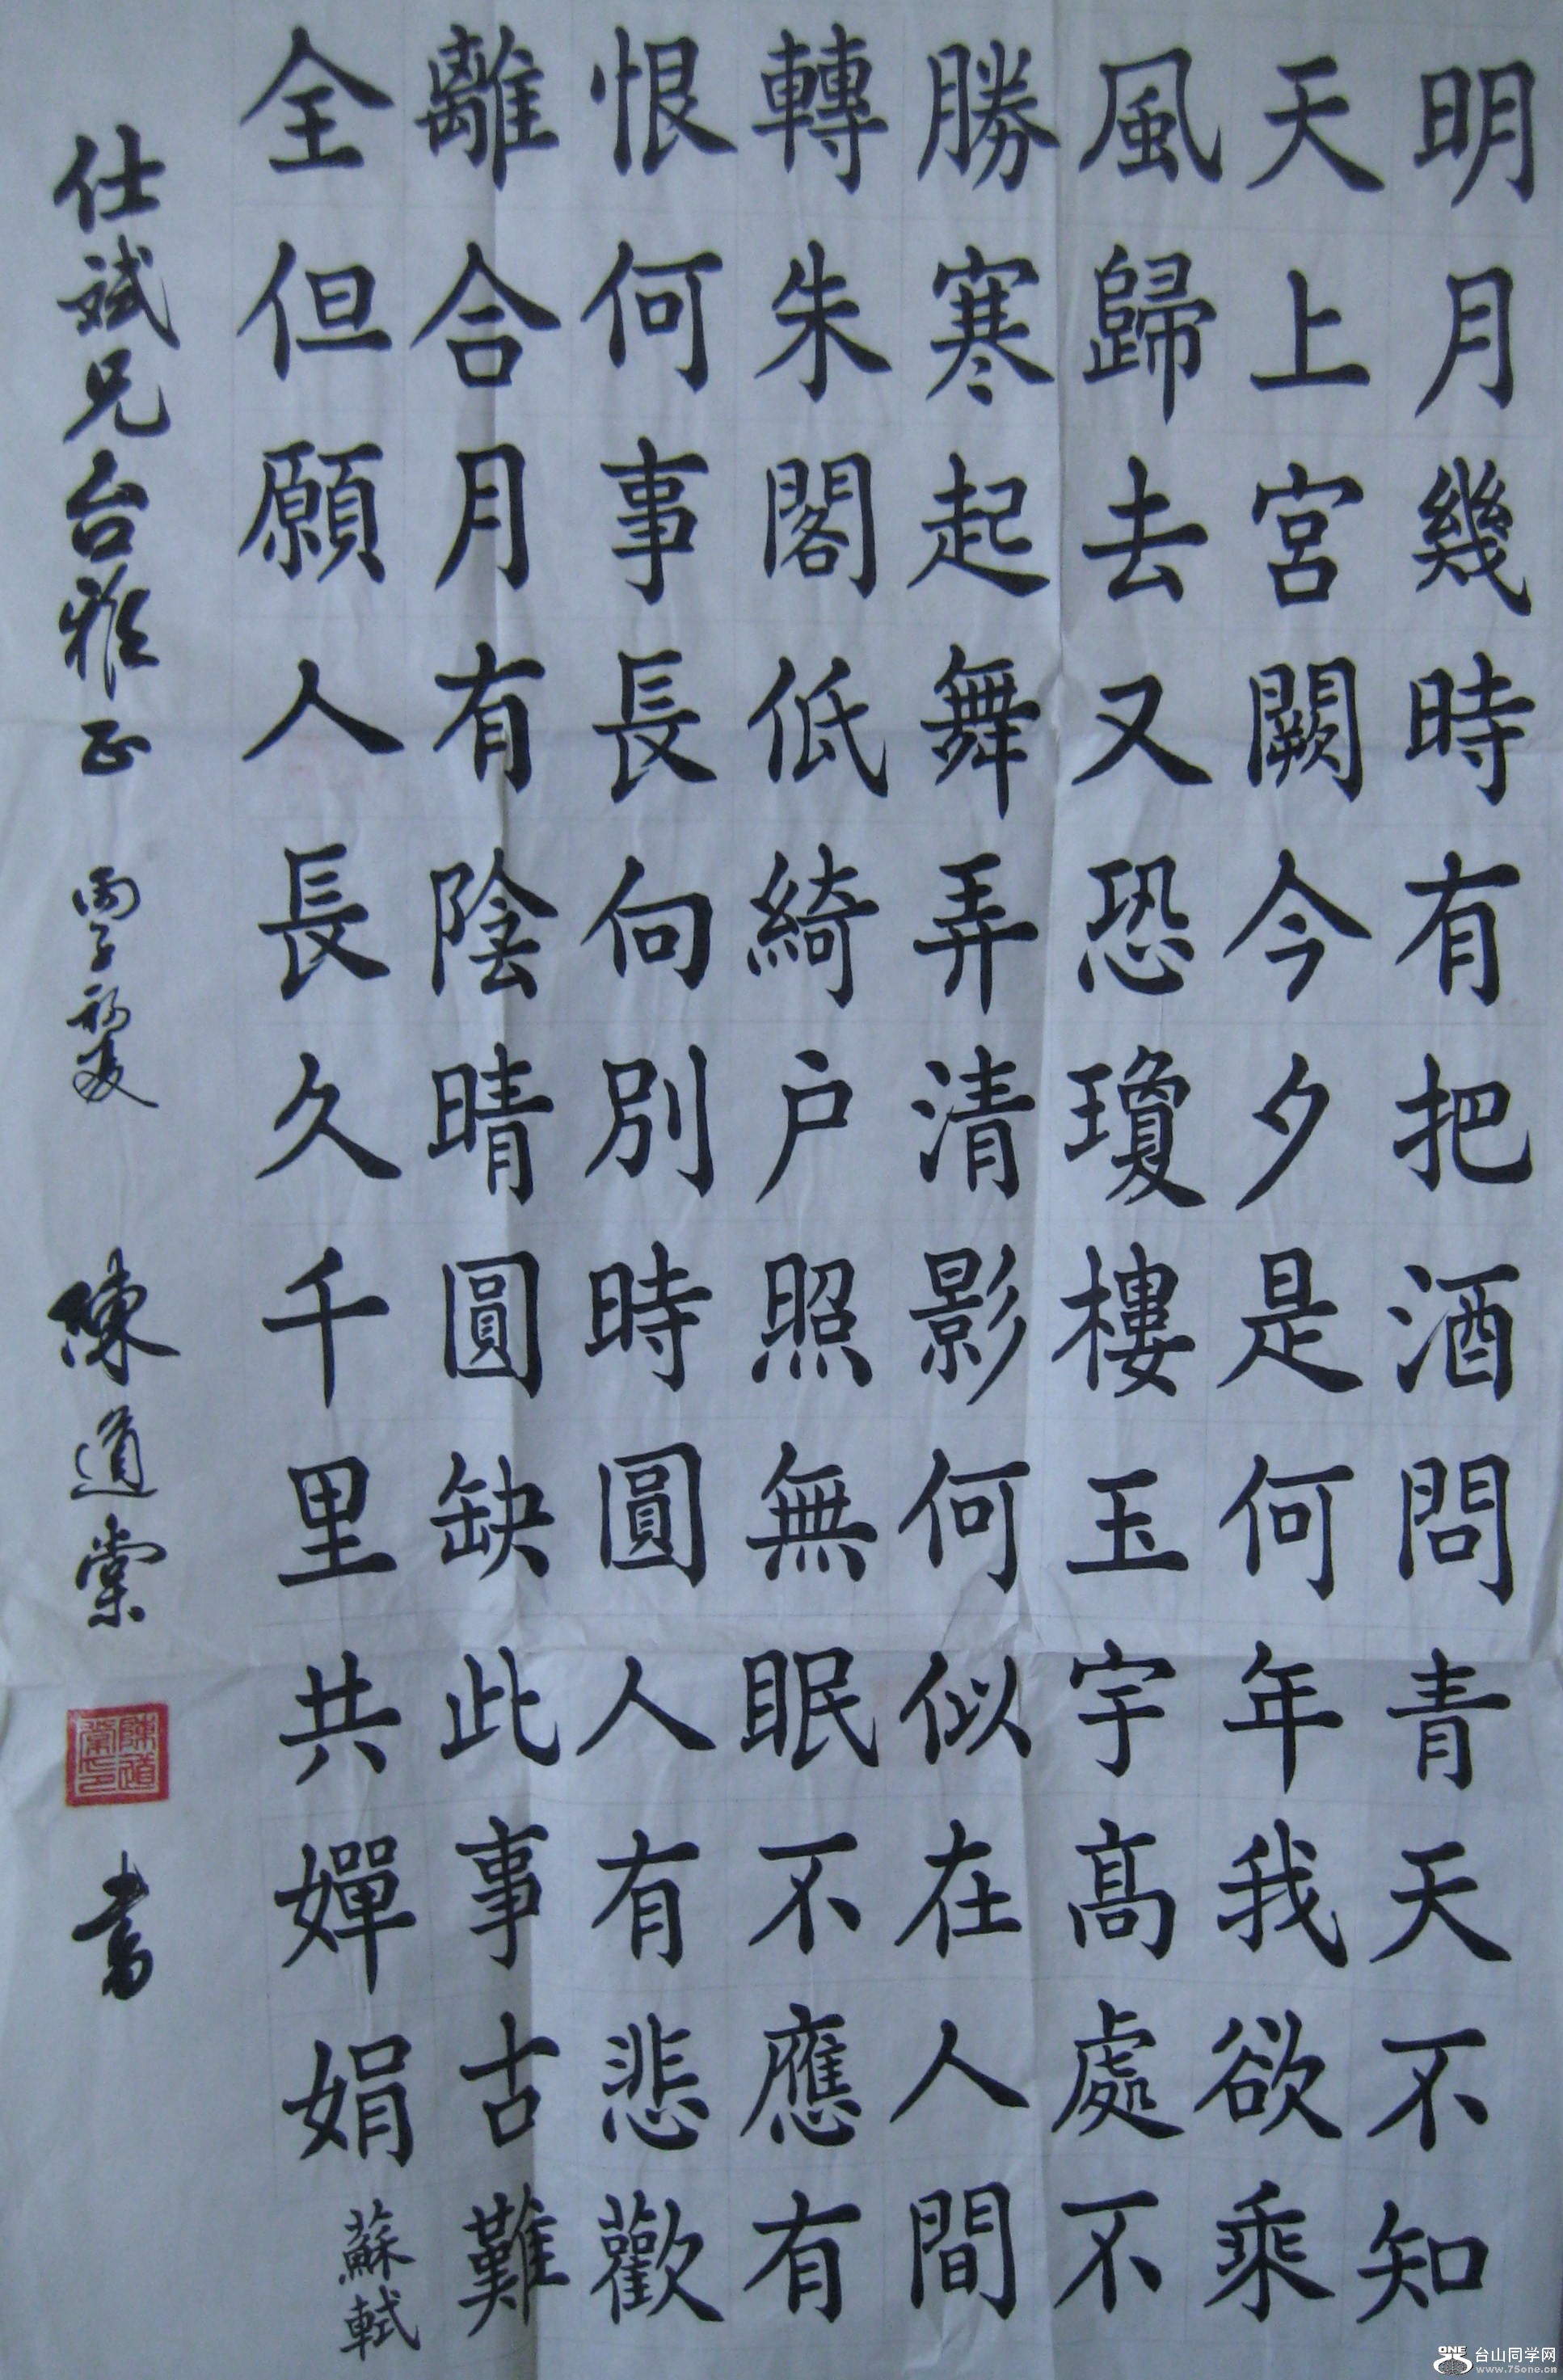 明月幾時有把酒問青天不知
天上宮闕今夕是何年我欲乘
風歸去又恐瓊樓玉宇高處不
勝寒起舞弄清影何似在人間
轉朱閣低綺户照無眠不應有
恨何事長向別時圓人有悲歡
離合月有陰晴圓缺此事古難
全但願人長久千里共嬋娟
蘇軾
仕斌兄台雅正 丙子初夏 陳道棠 書
陳道棠印
台山同学网
www.75one.cn